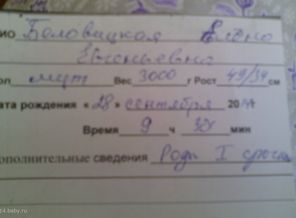 ИО Половицкая Елена
Евгеньевна
ол Вес 3000 г Рост 49/34 см
ата рождения «28» сентября 20
Время 9 ч 35 мин
ополнительные сведения Роды I срочн
4.baby.ru